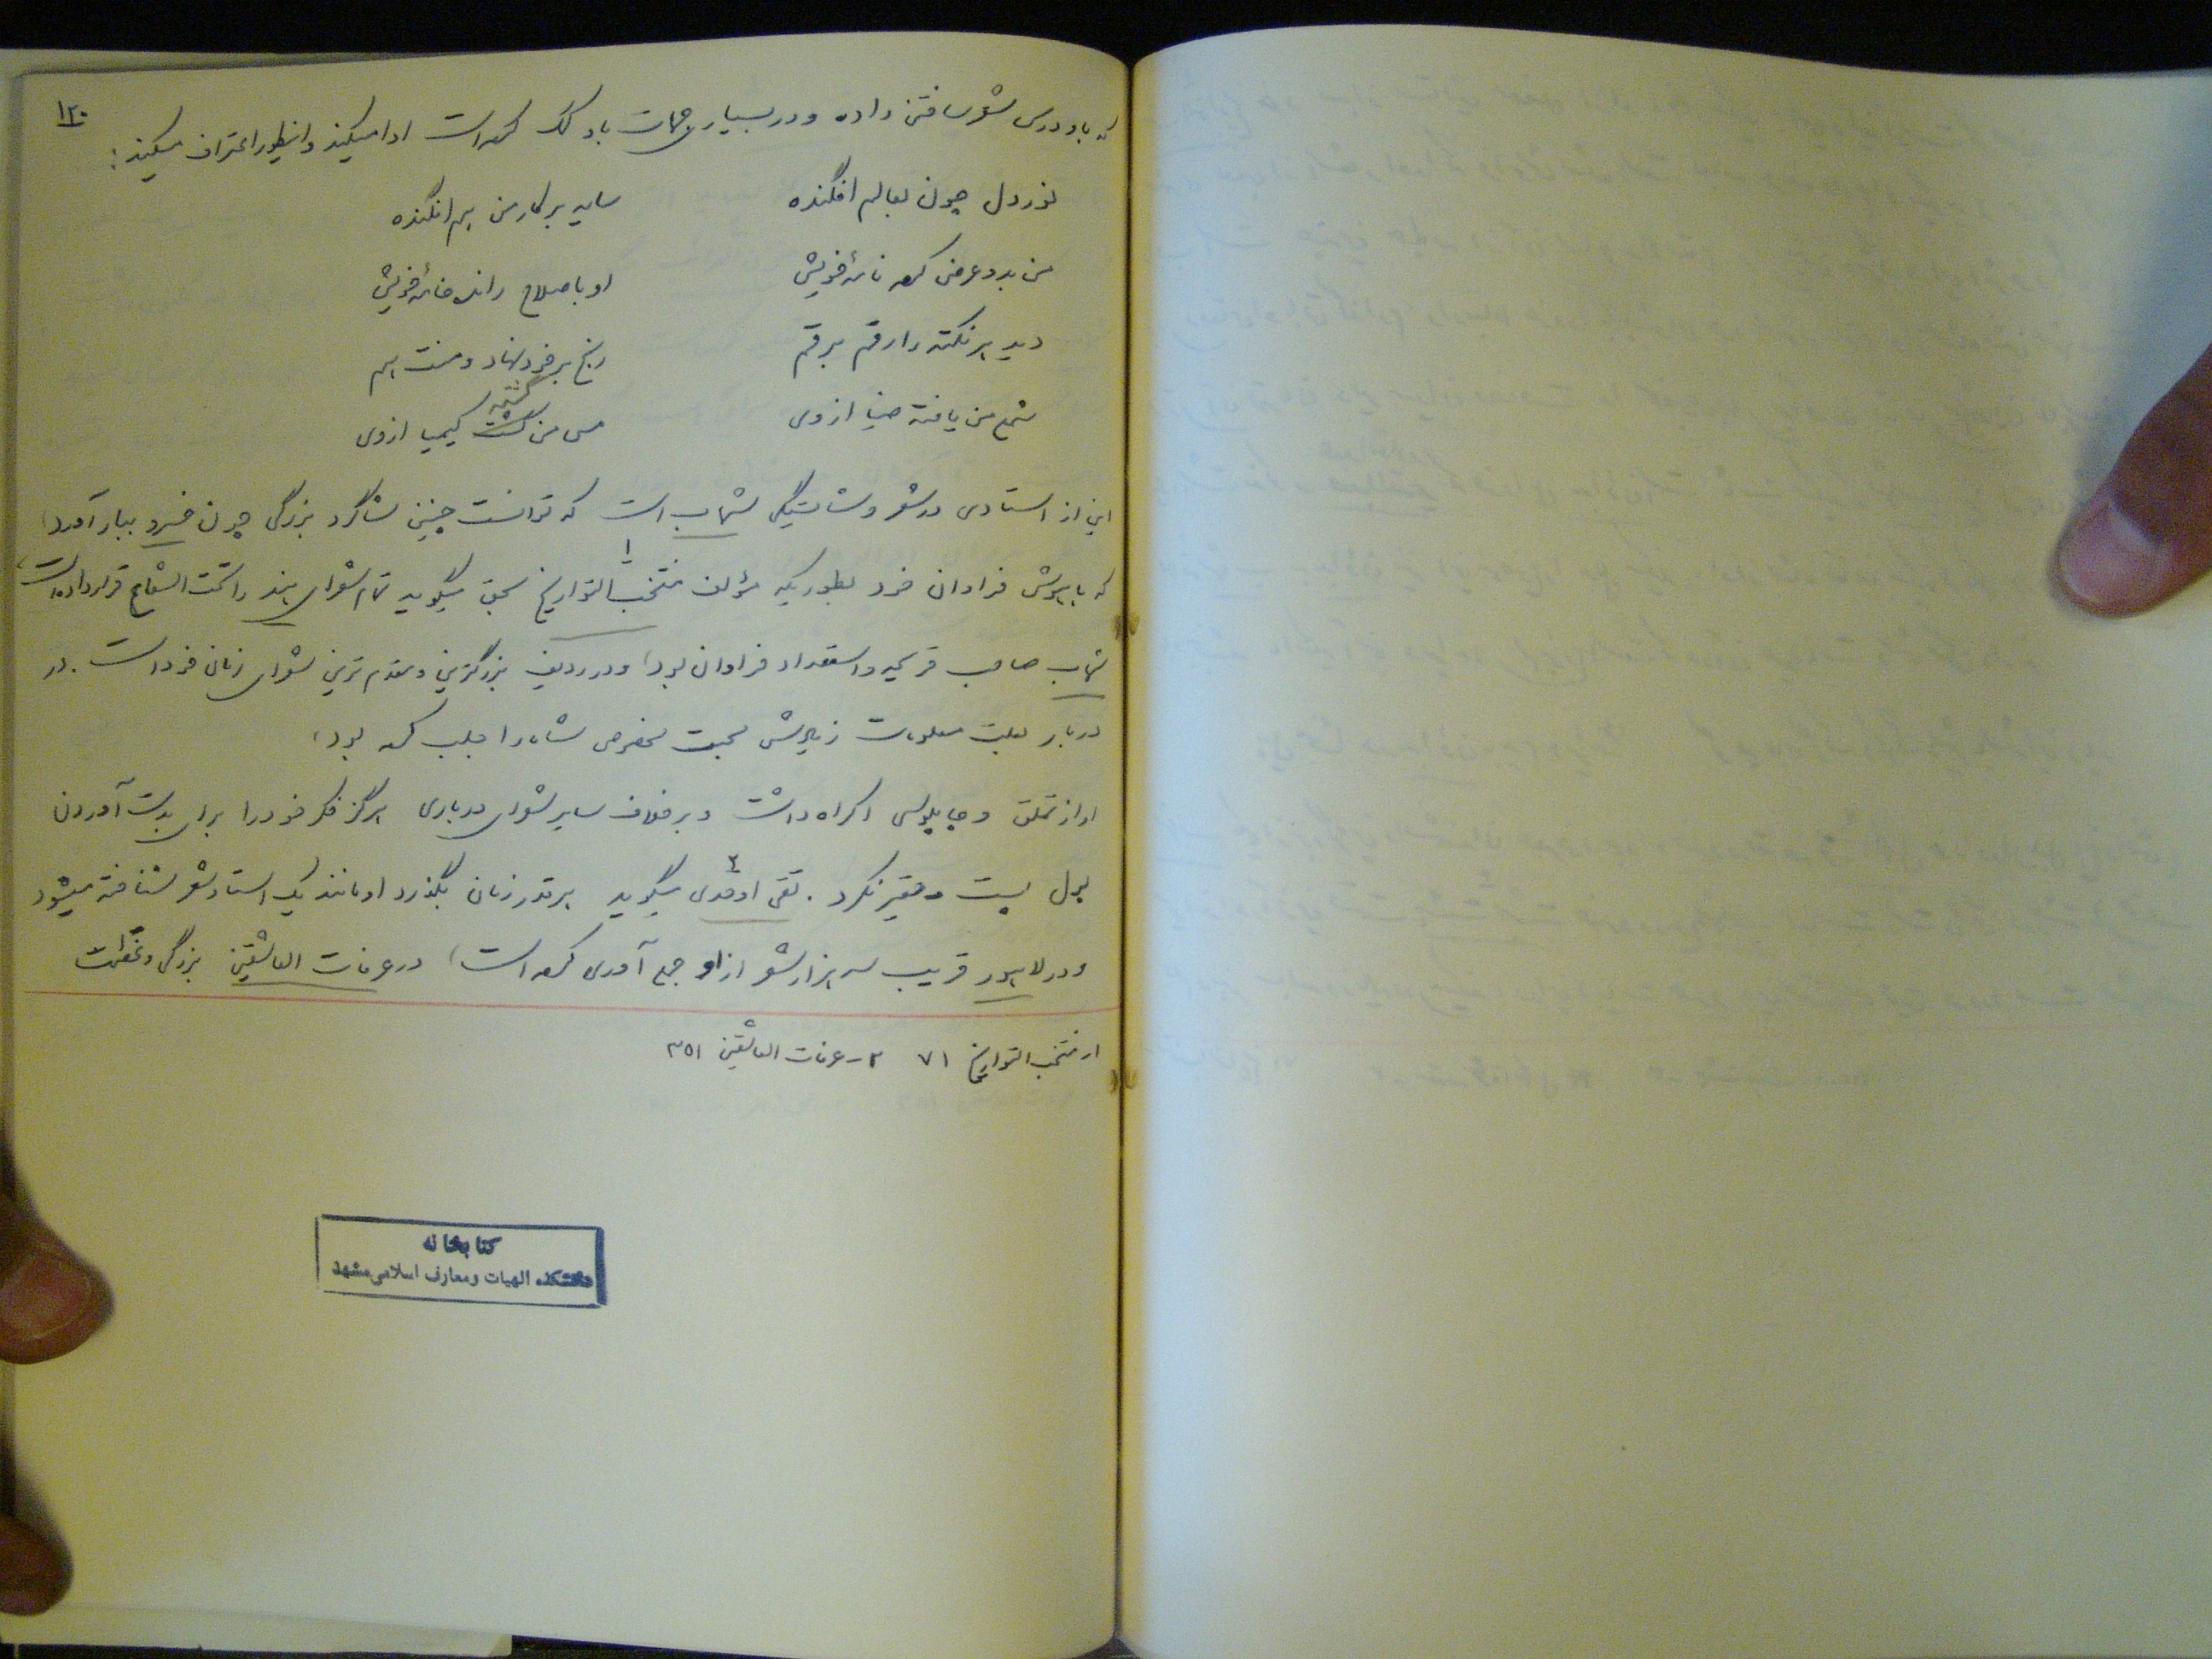 ۱۲۰
که باو درس شعر ساختن داده و در بسیار جهات باو کمک کرده است ادا میکند و اینطور اعتراف میکند:
نور دل چون بعالم افگنده سایه بر کار من هم افگنده
من بدو عرض کرده نامهٔ خویش او باصلاح رانده خامهٔ خویش
دید هر نکته را رقم برقم رنج بر خود نهاد و منت هم
شمع من یافته ضیا از وی مس من گشته کیمیا از وی
این از استادی در شعر و شایستگی شهاب است که توانست چنین شاگرد بزرگی چون خسرو ببار آورد،
که با پرتش فراوان خود بطوریکه مؤلف منتخب التواریخ۱ بحق میگوید تمام شعرای هند را تحت الشعاع قرار داده است،
شهاب صاحب قریحه و استعداد فراوان بود، و در ردیف بزرگترین و مقدم ترین شعرای زمان خود است. در
دربار بعلت معلومات زیادش محبت مخصوص شاه را جلب کرده بود،
او از تملق و چاپلوسی اکراه داشت و برخلاف سایر شعرای درباری هرگز فکر خود را برای بدست آوردن
پول پست و حقیر نکرد. تقی اوحدی۲ میگوید هر قدر زمان بگذرد او مانند یک استاد شعر شناخته میشود
و در لاهور قریب سه هزار شعر از او جمع آوری کرده است، در عرفات العاشقین بزرگی و عظمت
۱ـ منتخب التواریخ ۷۱ ۲ـ عرفات العاشقین ۳۵۱
کتابخانه
دانشکده الهیات و معارف اسلامی مشهد